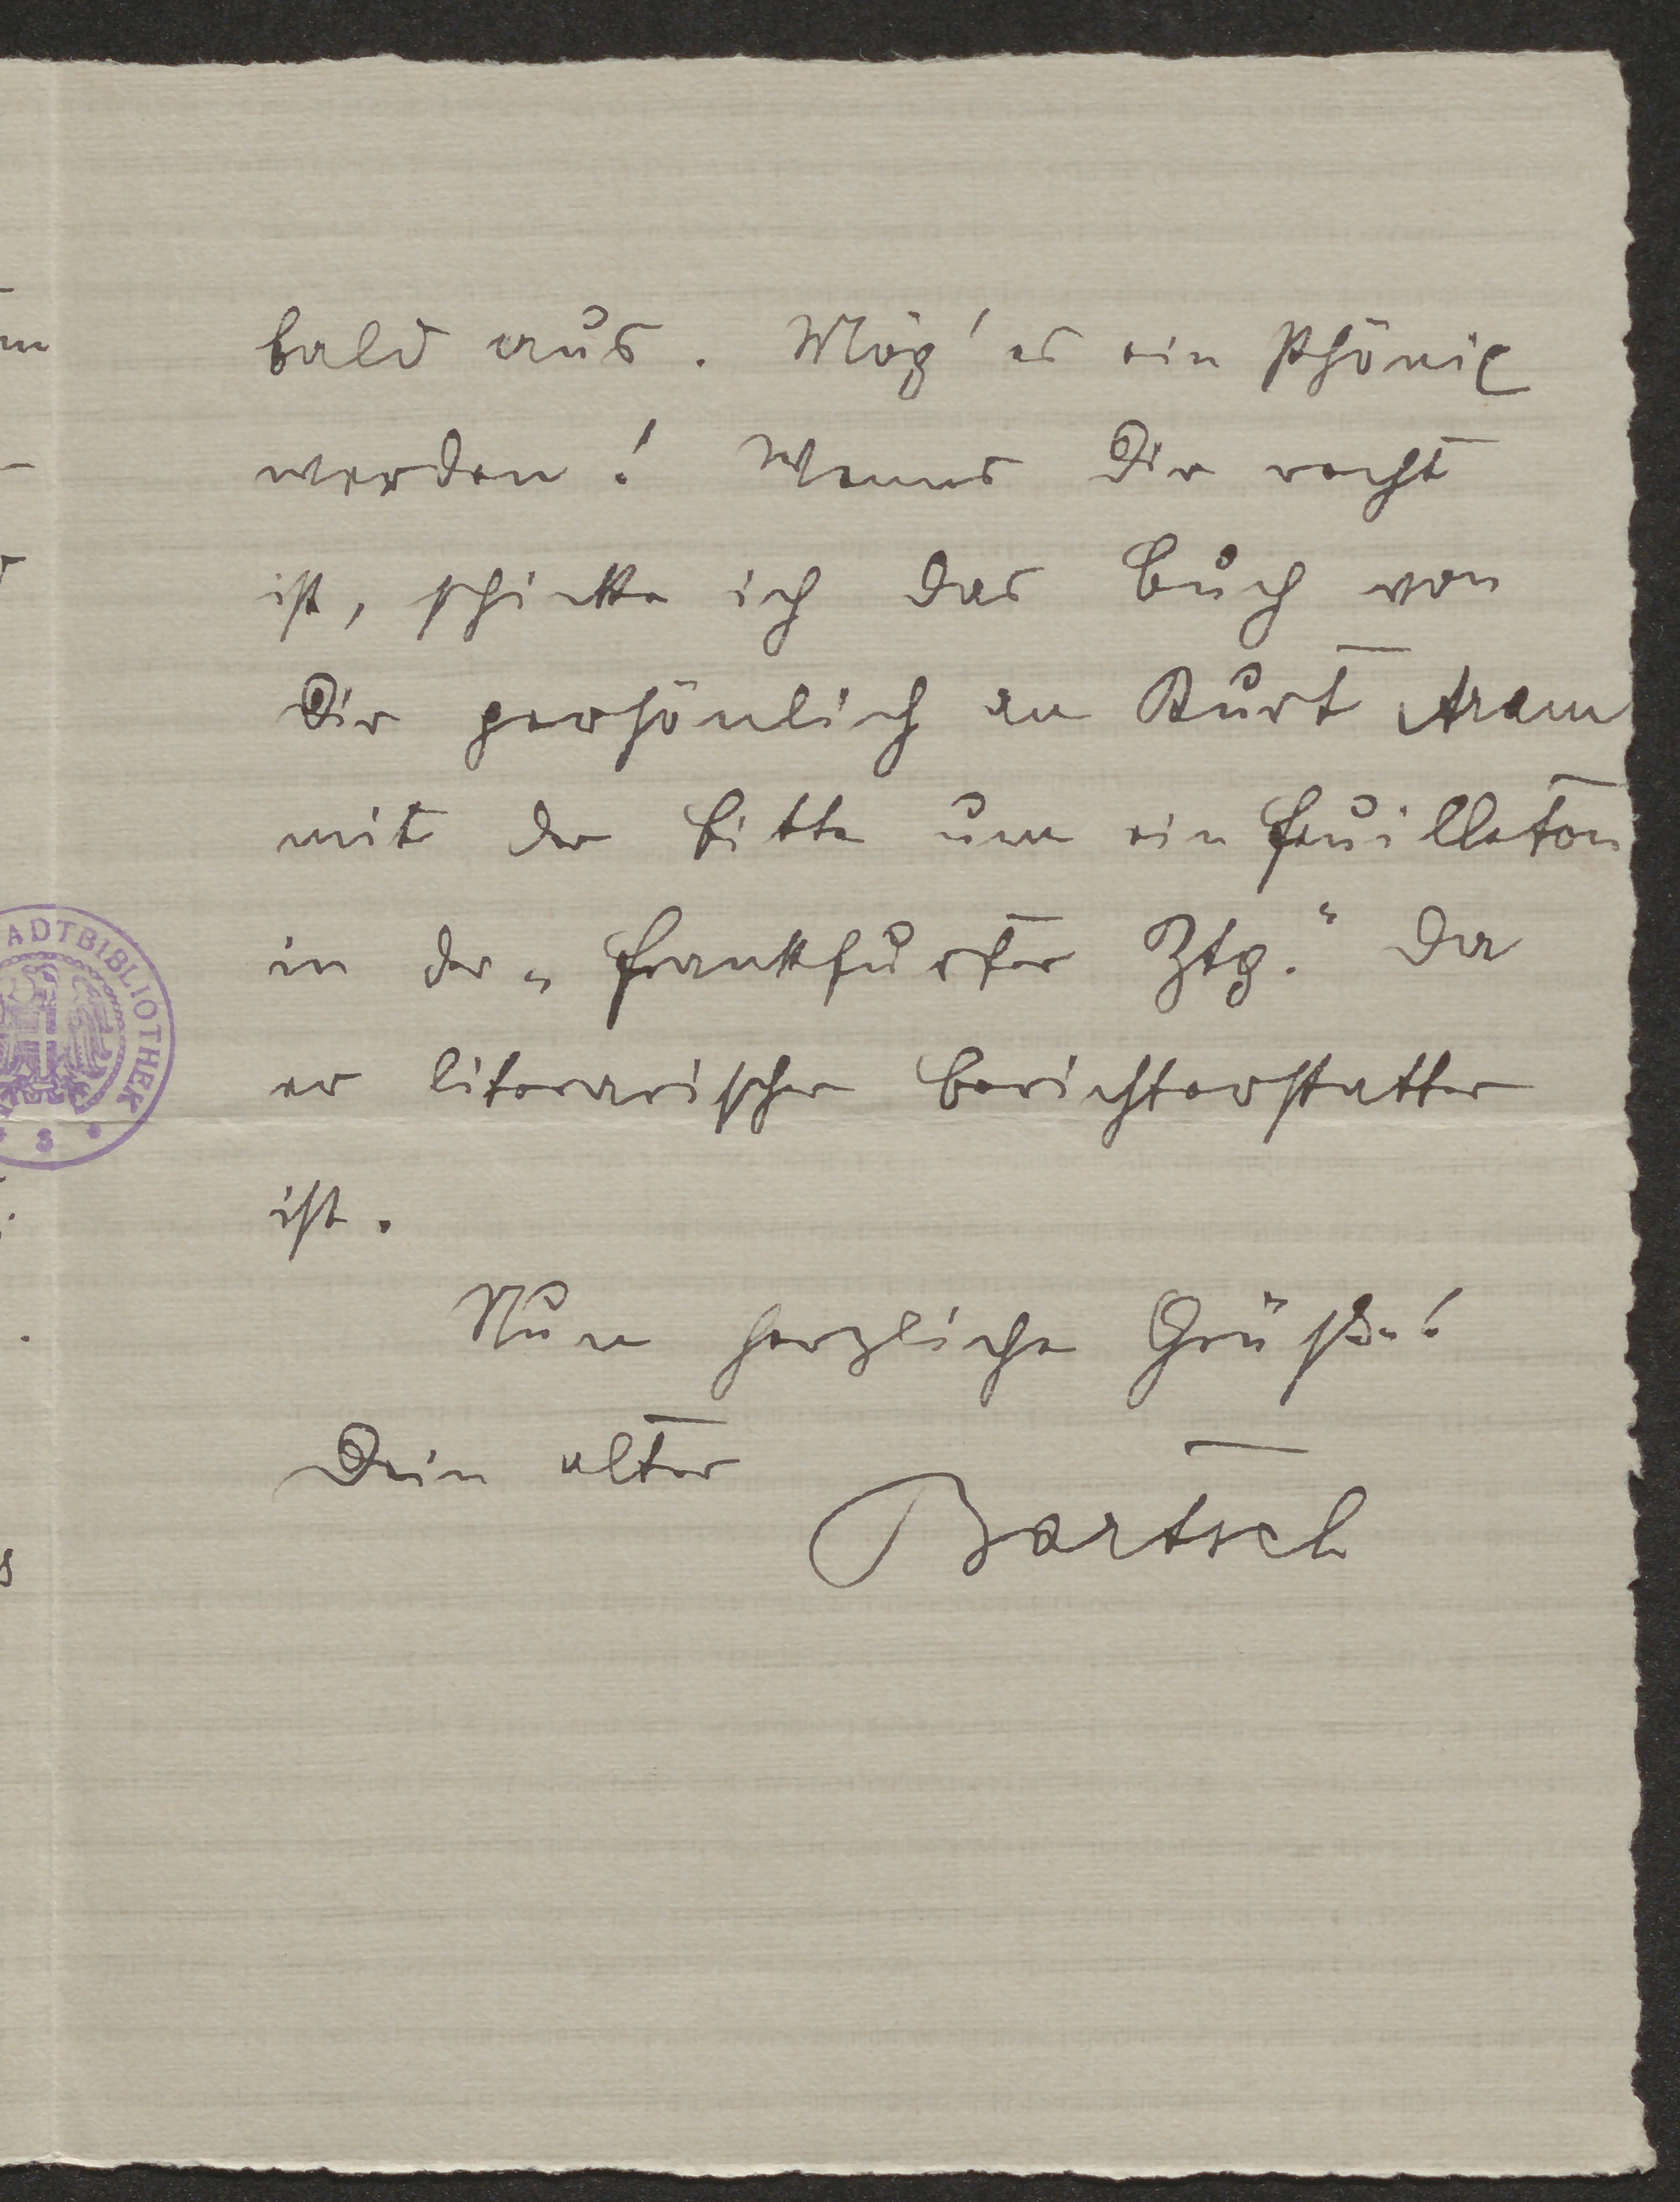 bald aus. Mög' es ein Phönix
werden! Wenns Dir recht
ist, schicke ich das Buch von
Dir persönlich an Kurt Aram
mit der Bitte um ein Feuilleton
in der „Frankfurter Ztg.“ Da
er literarischer Berichterstatter
ist.
Nun herzliche Grüße!
Dein alter
Bartsch
ADTBIBLIOTHEK